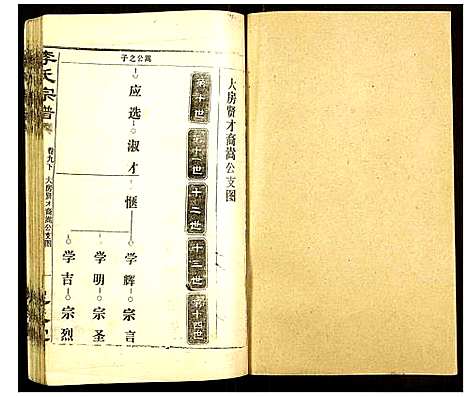 大房贤才裔嵩公支图
第十世
十二世
十三世
第十四世
嵩公之子
应选
淑才
惬
学辉 宗言
学明 宗圣
学吉 宗烈
李氏宗谱
卷九下 大房贤才裔嵩公支图